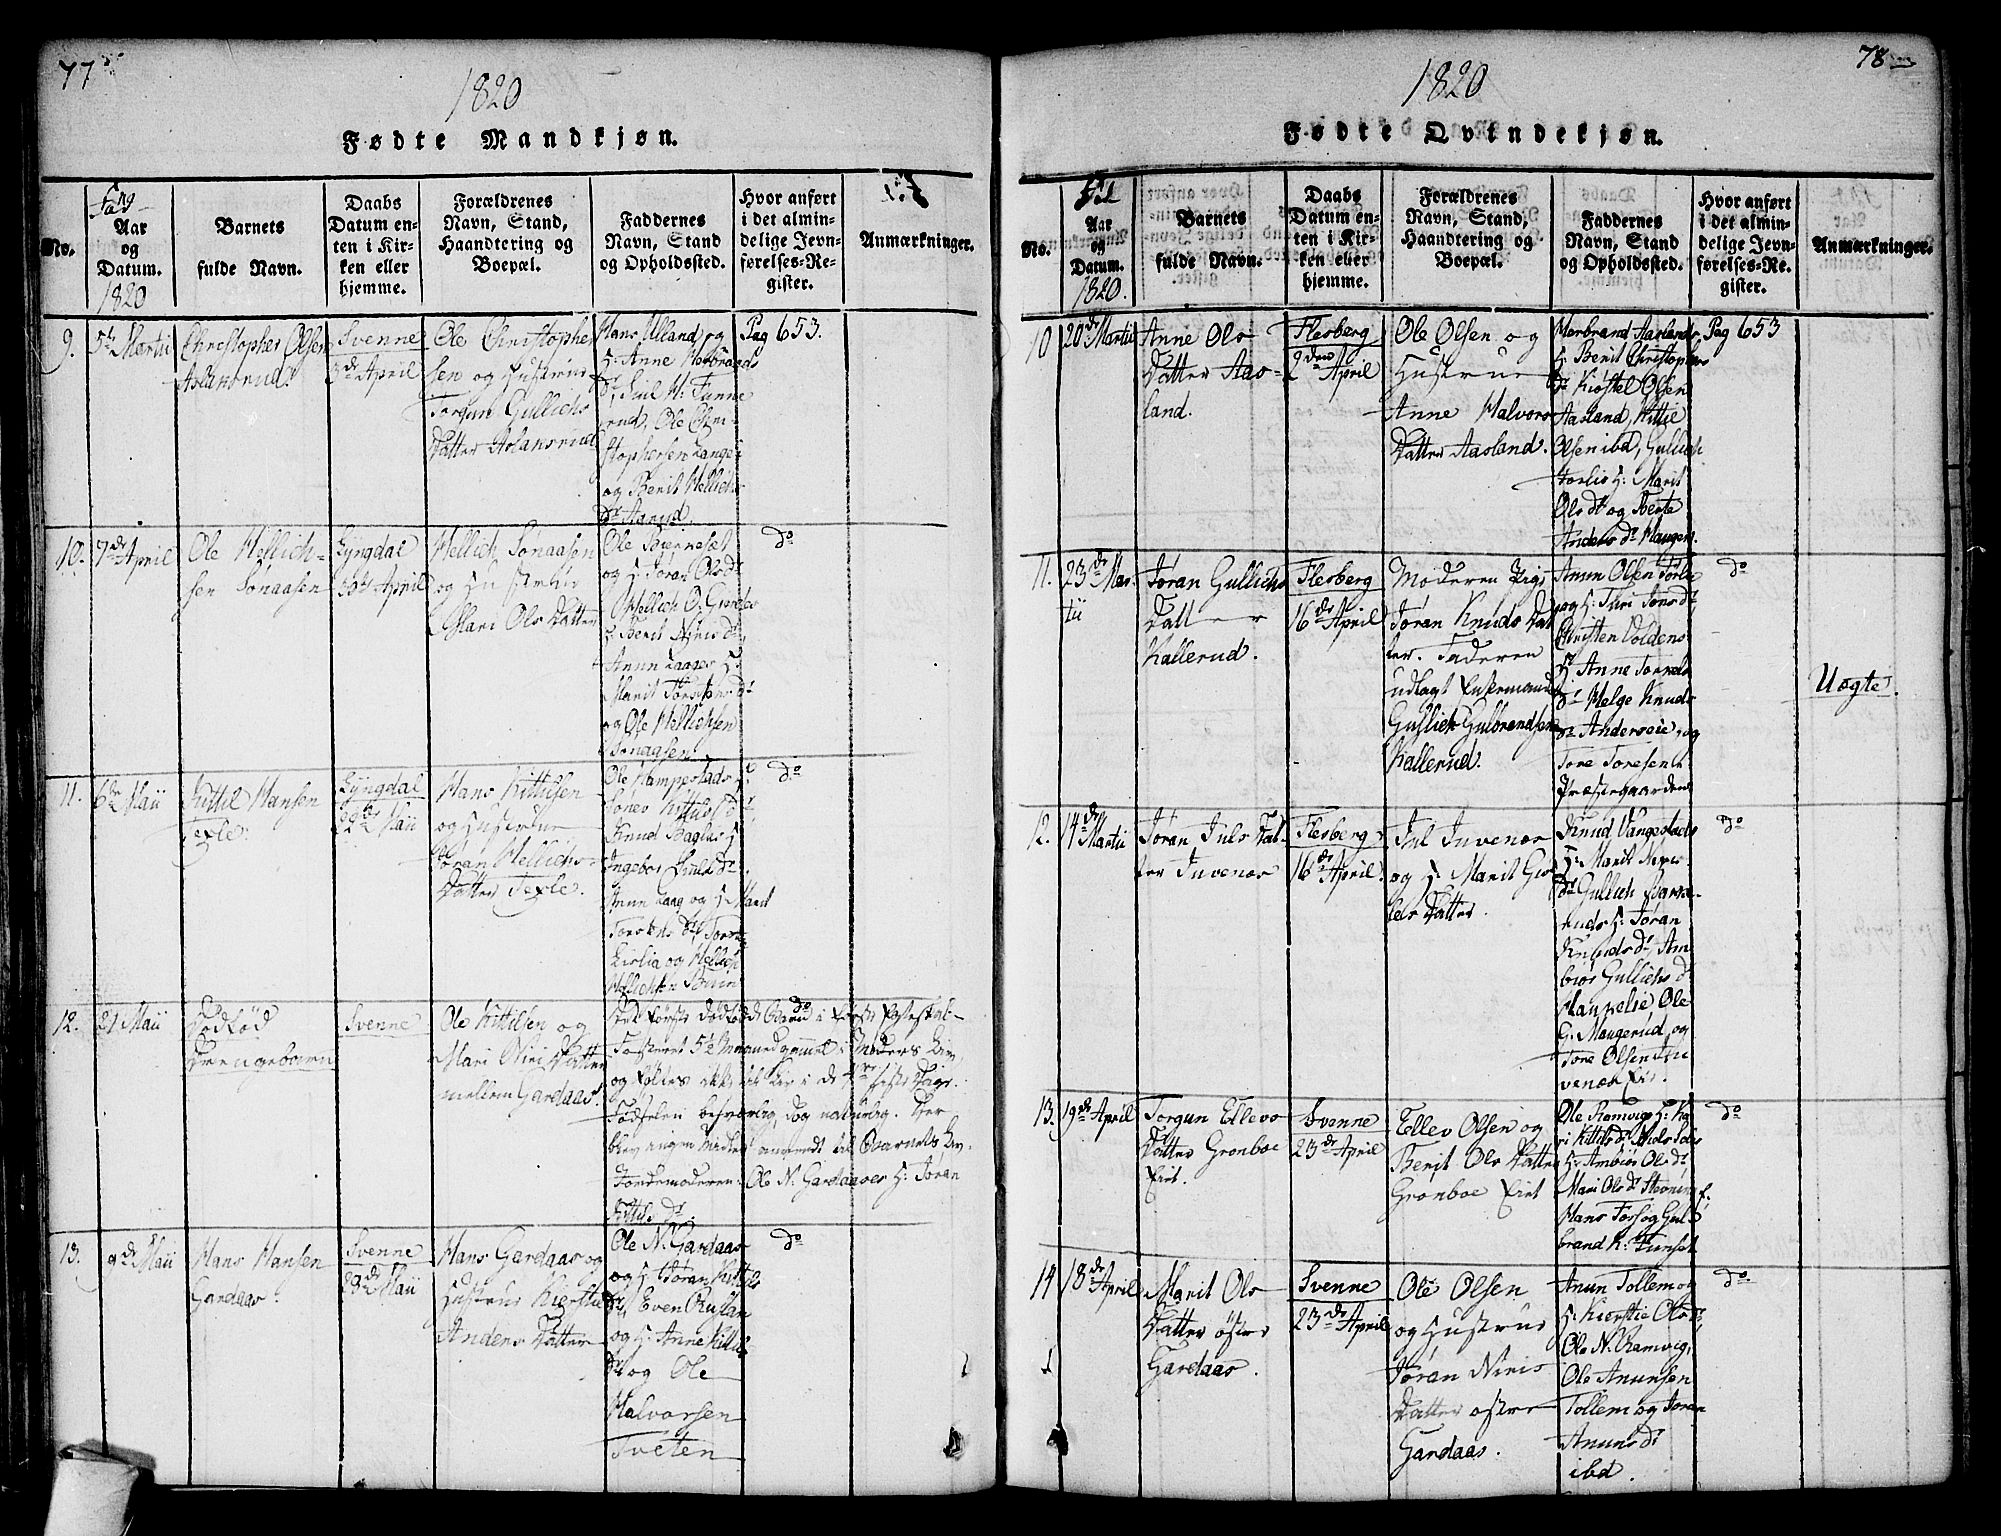 77
1820
Fødte Mandkjøn.
No.
Aar
og
Datum.
1820
Barnets
fulde Navn.
Daabs
Datum en-
ten i Kir-
ken eller
hjemme.
Forældrenes
Navn, Stand,
Haandtering og
Boepæl.
Faddernes
Navn, Stand
og Opholdssted.
Hvor anført
i det almin-
delige Jevn-
førelses-Re-
gister.
Anmærkninger.
9.
5te Martii
Christopher Olsen
Aslansrud.
Svenne
3de April
Ole Christopher
sen og Hustrue
Torgun Gullichs
Datter Aslansrud
Hans Ulland og
H: Anne
rud, Ole Chri-
stophersen Lange
og Berit Hellichs
Dr Aarud.
Pag 653.
10.
7de April
Ole Hellich-
sen Sønaasen
Lyngdal
30te April
Hellich Sønaasen
og Hustrue
Mari Ols Datter
Ole Bierneset
og H: Jøran Ols dr
Hellich O:
Berit Niris dr
Anun Laager H:
Marit dr
og Ole Hellichsen
Sønaasen
do
11.
6te Maii
Kittil Hansen
Texle.
Lyngdal
22de Maii
Hans Kittilsen
og Hustrue
Jøran Hellichs-
Datter Texle.
Ole Kampestads
Kittils dr
Knud Baglas H
Ingebor dr
Anun Laag og H Marit
Lislia og Hellich
Hellichsen
do
12.
21 Maii
Dødfød
Drengebarn
Svenne
Ole Kittilsen og
Mari Niri Datter
mellem Gardaas.
Det første dødfødde Barn i
5½ Maaned gammel i Moders Liv
og følles ikke
Fødselen besværlig, dog naturlig. Der
blev ingen Midler anvendt til Barnets Liv.
Jordemoderen: Ole N: Gardaases H: Jøran
Kittils dr
do
13.
9de Maii
Hans Hansen
Gardaas.
Svenne
29de Maii
Hans Gardaas og
Hustrue Kierstie
Anders Datter
Ole N: Gardaas
og H: Jøran Kittils
Dr Even Ruslan
og H: Anne Kittils
Dr og Ole
Halvorsen
Tveten
do
78
1820
Fødte Qvindekjøn.
No.
Aar
og
Datum.
1820.
Barnets
fulde Navn.
Daabs
Datum en-
ten i Kir-
ken eller
hjemme.
Forældrenes
Navn, Stand,
Haandtering og
Boepæl.
Faddernes
Navn, Stand
og Opholdssted.
Hvor anført
i det almin-
delige Jevn-
førelses-Re-
gister.
Anmærkninger.
10
20de Martii
Anne Ols
Datter Aas-
land.
Flesberg
2den April
Ole Olsen og
Hustrue
Anne Halvors
Datter Aasland.
Herbrand Aaslands
H: Berit Christophers
Dr Kiøstel Olsen
Aasland, Kittil
Olsen ibd, Gullich
Torlis H: Marit
Ols dr og Berte
Anders dr Haugen.
Pag 653
11.
23de Mar-
tii
Jøran Gullichs
Datter
Kallerud.
Flesberg
16de April
Moderen Pige
Jøran Knuds Dat
ter. Faderen
udlagt Enkemand
Gullich Gulbrandsen
Kallerud.
Anun Olsen Torlie
og H: Turi Jons dr
Christen Voldens
H: Anne
Dr Helge Knuds
Dr Anderseie, og
Tore Toresen
Præstegaarden
do
Uægte.
12.
14de
Martii
Jøran Juls Dat-
ter Juvenæs
Flesberg
16de April.
Jul Juvenæs
og H: Marit Gis
lels Datter.
Knud Vangestads
H: Marit
Dr Gullich
H: Jøran
Knuds dr, Am
biør Gullichs dr
Ole
G: Haugerud, og
Tore Olsen Ju
venæs Eie.
do
13.
19de April
Torgun Ellevs
Datter Grønboe
Eiet.
Svenne
23de April
Ellev Olsen og
Berit Ols Datter
Grønboe Eiet
Ole Ramvigs H: Ka
ri Kittils dr
H: Ambiør Ols dr
Mari Ols dr
Hans og Gul
brand H: Tunset
do
14
18de April
Marit Ols
Datter østre
Gardaas.
Svenne
23de April
Ole Olsen
og Hustrue
Jøran Niris
Datter østre
Gardaas.
Anun Tollem og
H: Kierstie Ols dr,
Ole N: Ramvig,
Ole Anunsen
Tollem og Jøran
Anuns dr
ibd.
do